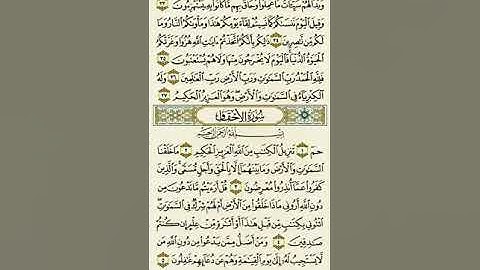 وَبَدَا لَهُمْ سَيِّـَٔاتُ مَا عَمِلُوا۟ وَحَاقَ بِهِم مَّا كَانُوا۟ بِهِۦ يَسْتَهْزِءُونَ ٣٣
وَقِيلَ ٱلْيَوْمَ نَنسَىٰكُمْ كَمَا نَسِيتُمْ لِقَآءَ يَوْمِكُمْ هَٰذَا وَمَأْوَىٰكُمُ ٱلنَّارُ وَمَا
لَكُم مِّن نَّٰصِرِينَ ٣٤ ذَٰلِكُم بِأَنَّكُمُ ٱتَّخَذْتُمْ ءَايَٰتِ ٱللَّهِ هُزُوًا وَغَرَّتْكُمُ
ٱلْحَيَوٰةُ ٱلدُّنْيَا فَٱلْيَوْمَ لَا يُخْرَجُونَ مِنْهَا وَلَا هُمْ يُسْتَعْتَبُونَ ٣٥
فَلِلَّهِ ٱلْحَمْدُ رَبِّ ٱلسَّمَٰوَٰتِ وَرَبِّ ٱلْأَرْضِ رَبِّ ٱلْعَٰلَمِينَ ٣٦ وَلَهُ
ٱلْكِبْرِيَآءُ فِى ٱلسَّمَٰوَٰتِ وَٱلْأَرْضِ وَهُوَ ٱلْعَزِيزُ ٱلْحَكِيمُ ٣٧
سُورَةُ الأَحْقَافِ
بِسْمِ ٱللَّهِ ٱلرَّحْمَٰنِ ٱلرَّحِيمِ
حمٓ ١ تَنزِيلُ ٱلْكِتَٰبِ مِنَ ٱللَّهِ ٱلْعَزِيزِ ٱلْحَكِيمِ ٢ مَا خَلَقْنَا
ٱلسَّمَٰوَٰتِ وَٱلْأَرْضَ وَمَا بَيْنَهُمَآ إِلَّا بِٱلْحَقِّ وَأَجَلٍ مُّسَمًّى وَٱلَّذِينَ
كَفَرُوا۟ عَمَّآ أُنذِرُوا۟ مُعْرِضُونَ ٣ قُلْ أَرَءَيْتُم مَّا تَدْعُونَ مِن
دُونِ ٱللَّهِ أَرُونِى مَاذَا خَلَقُوا۟ مِنَ ٱلْأَرْضِ أَمْ لَهُمْ شِرْكٌ فِى ٱلسَّمَٰوَٰتِ
ٱئْتُونِى بِكِتَٰبٍ مِّن قَبْلِ هَٰذَآ أَوْ أَثَٰرَةٍ مِّنْ عِلْمٍ إِن كُنتُمْ
صَٰدِقِينَ ٤ وَمَنْ أَضَلُّ مِمَّن يَدْعُوا۟ مِن دُونِ ٱللَّهِ مَن
لَّا يَسْتَجِيبُ لَهُۥٓ إِلَىٰ يَوْمِ ٱلْقِيَٰمَةِ وَهُمْ عَن دُعَآئِهِمْ غَٰفِلُونَ ٥